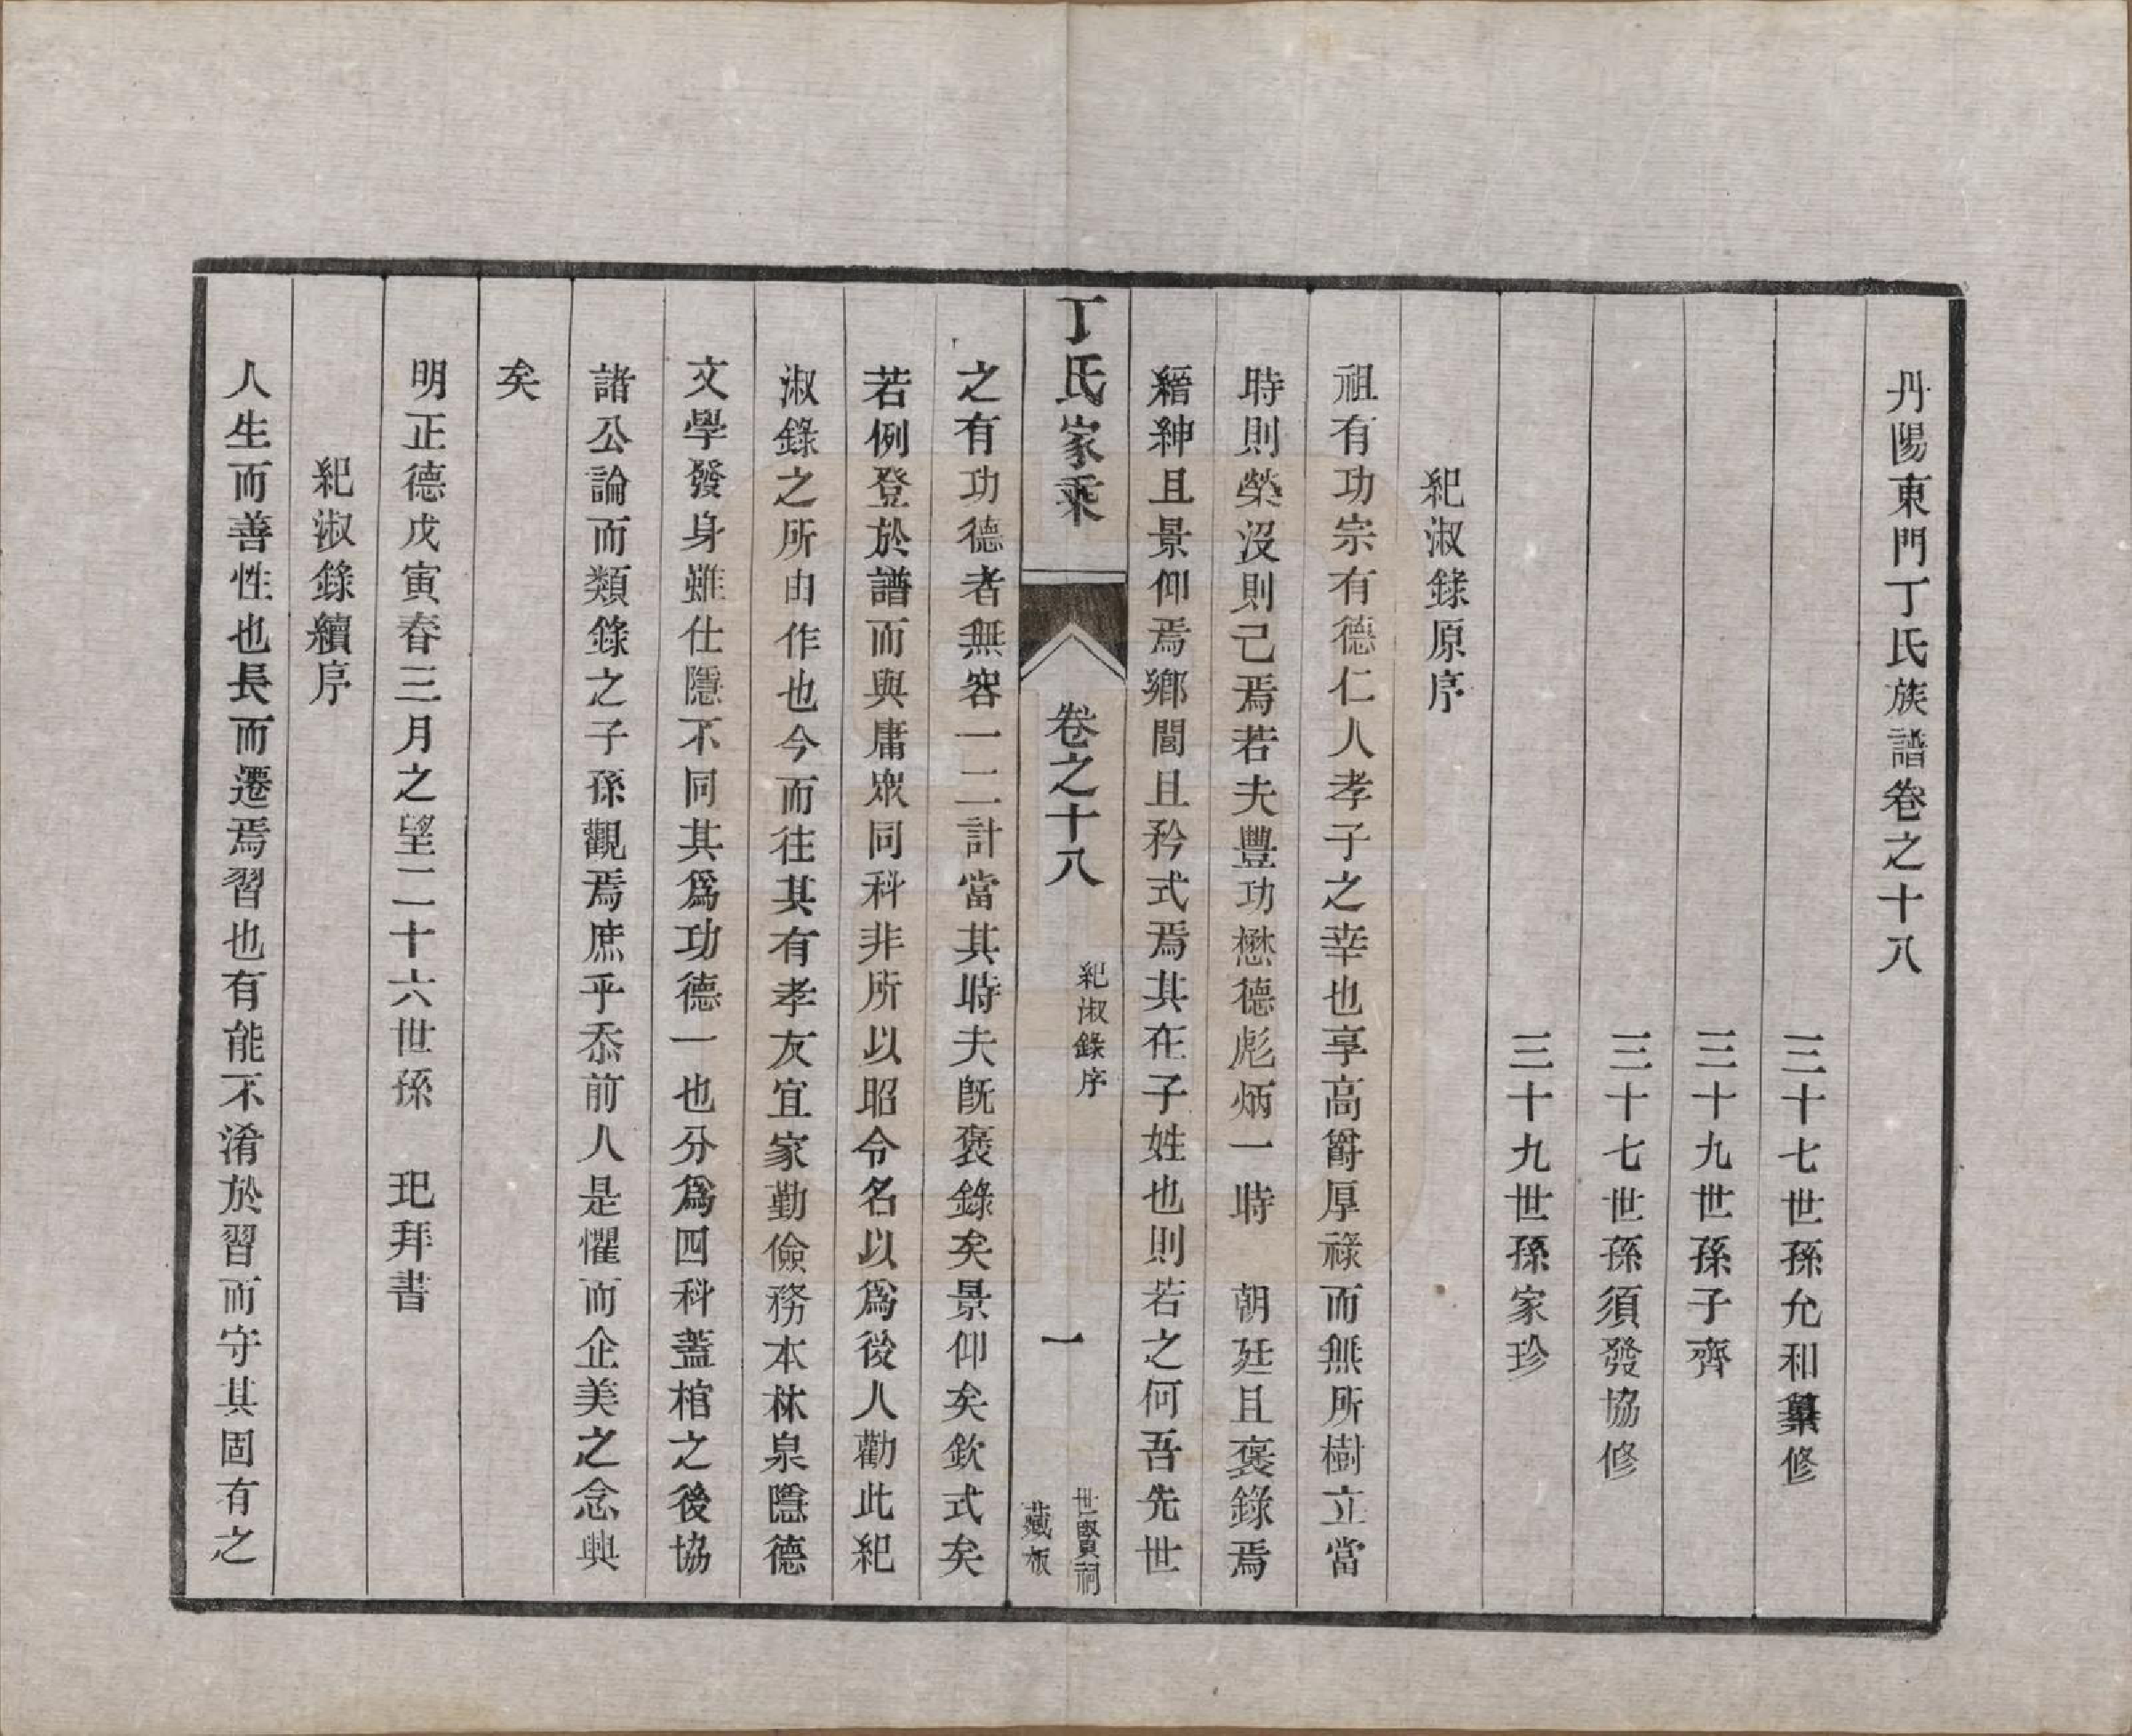 丹陽東門丁氏族譜卷之十八
三十七世孫允和纂修
三十九世孫子齊
三十七世孫須發協修
三十九世孫家珍
紀淑錄原序
祖有功宗有德仁人孝子之幸也享高爵厚祿而無所樹立當
時則榮沒則己焉若夫豐功懋德彪炳一時　朝廷且褒錄焉
縉紳且景仰焉鄉閭且矜式焉其在子姓也則若之何吾先世
丁氏家乘
卷之十八
紀淑錄序
一
世賢祠
藏板
之有功德者無容一二計當其時夫旣褒錄矣景仰矣欽式矣
若例登於譜而與庸衆同科非所以昭令名以爲後人勸此紀
淑錄之所由作也今而往其有孝友宜家勤儉務本林泉隱德
文學發身雖仕隱不同其爲功德一也分爲四科蓋棺之後協
諸公論而類錄之子孫觀焉庶乎忝前人是懼而企美之念興
矣
明正德戊寅春三月之望二十六世孫　玘拜書
紀淑錄續序
人生而善性也長而遷焉習也有能不淆於習而守其固有之